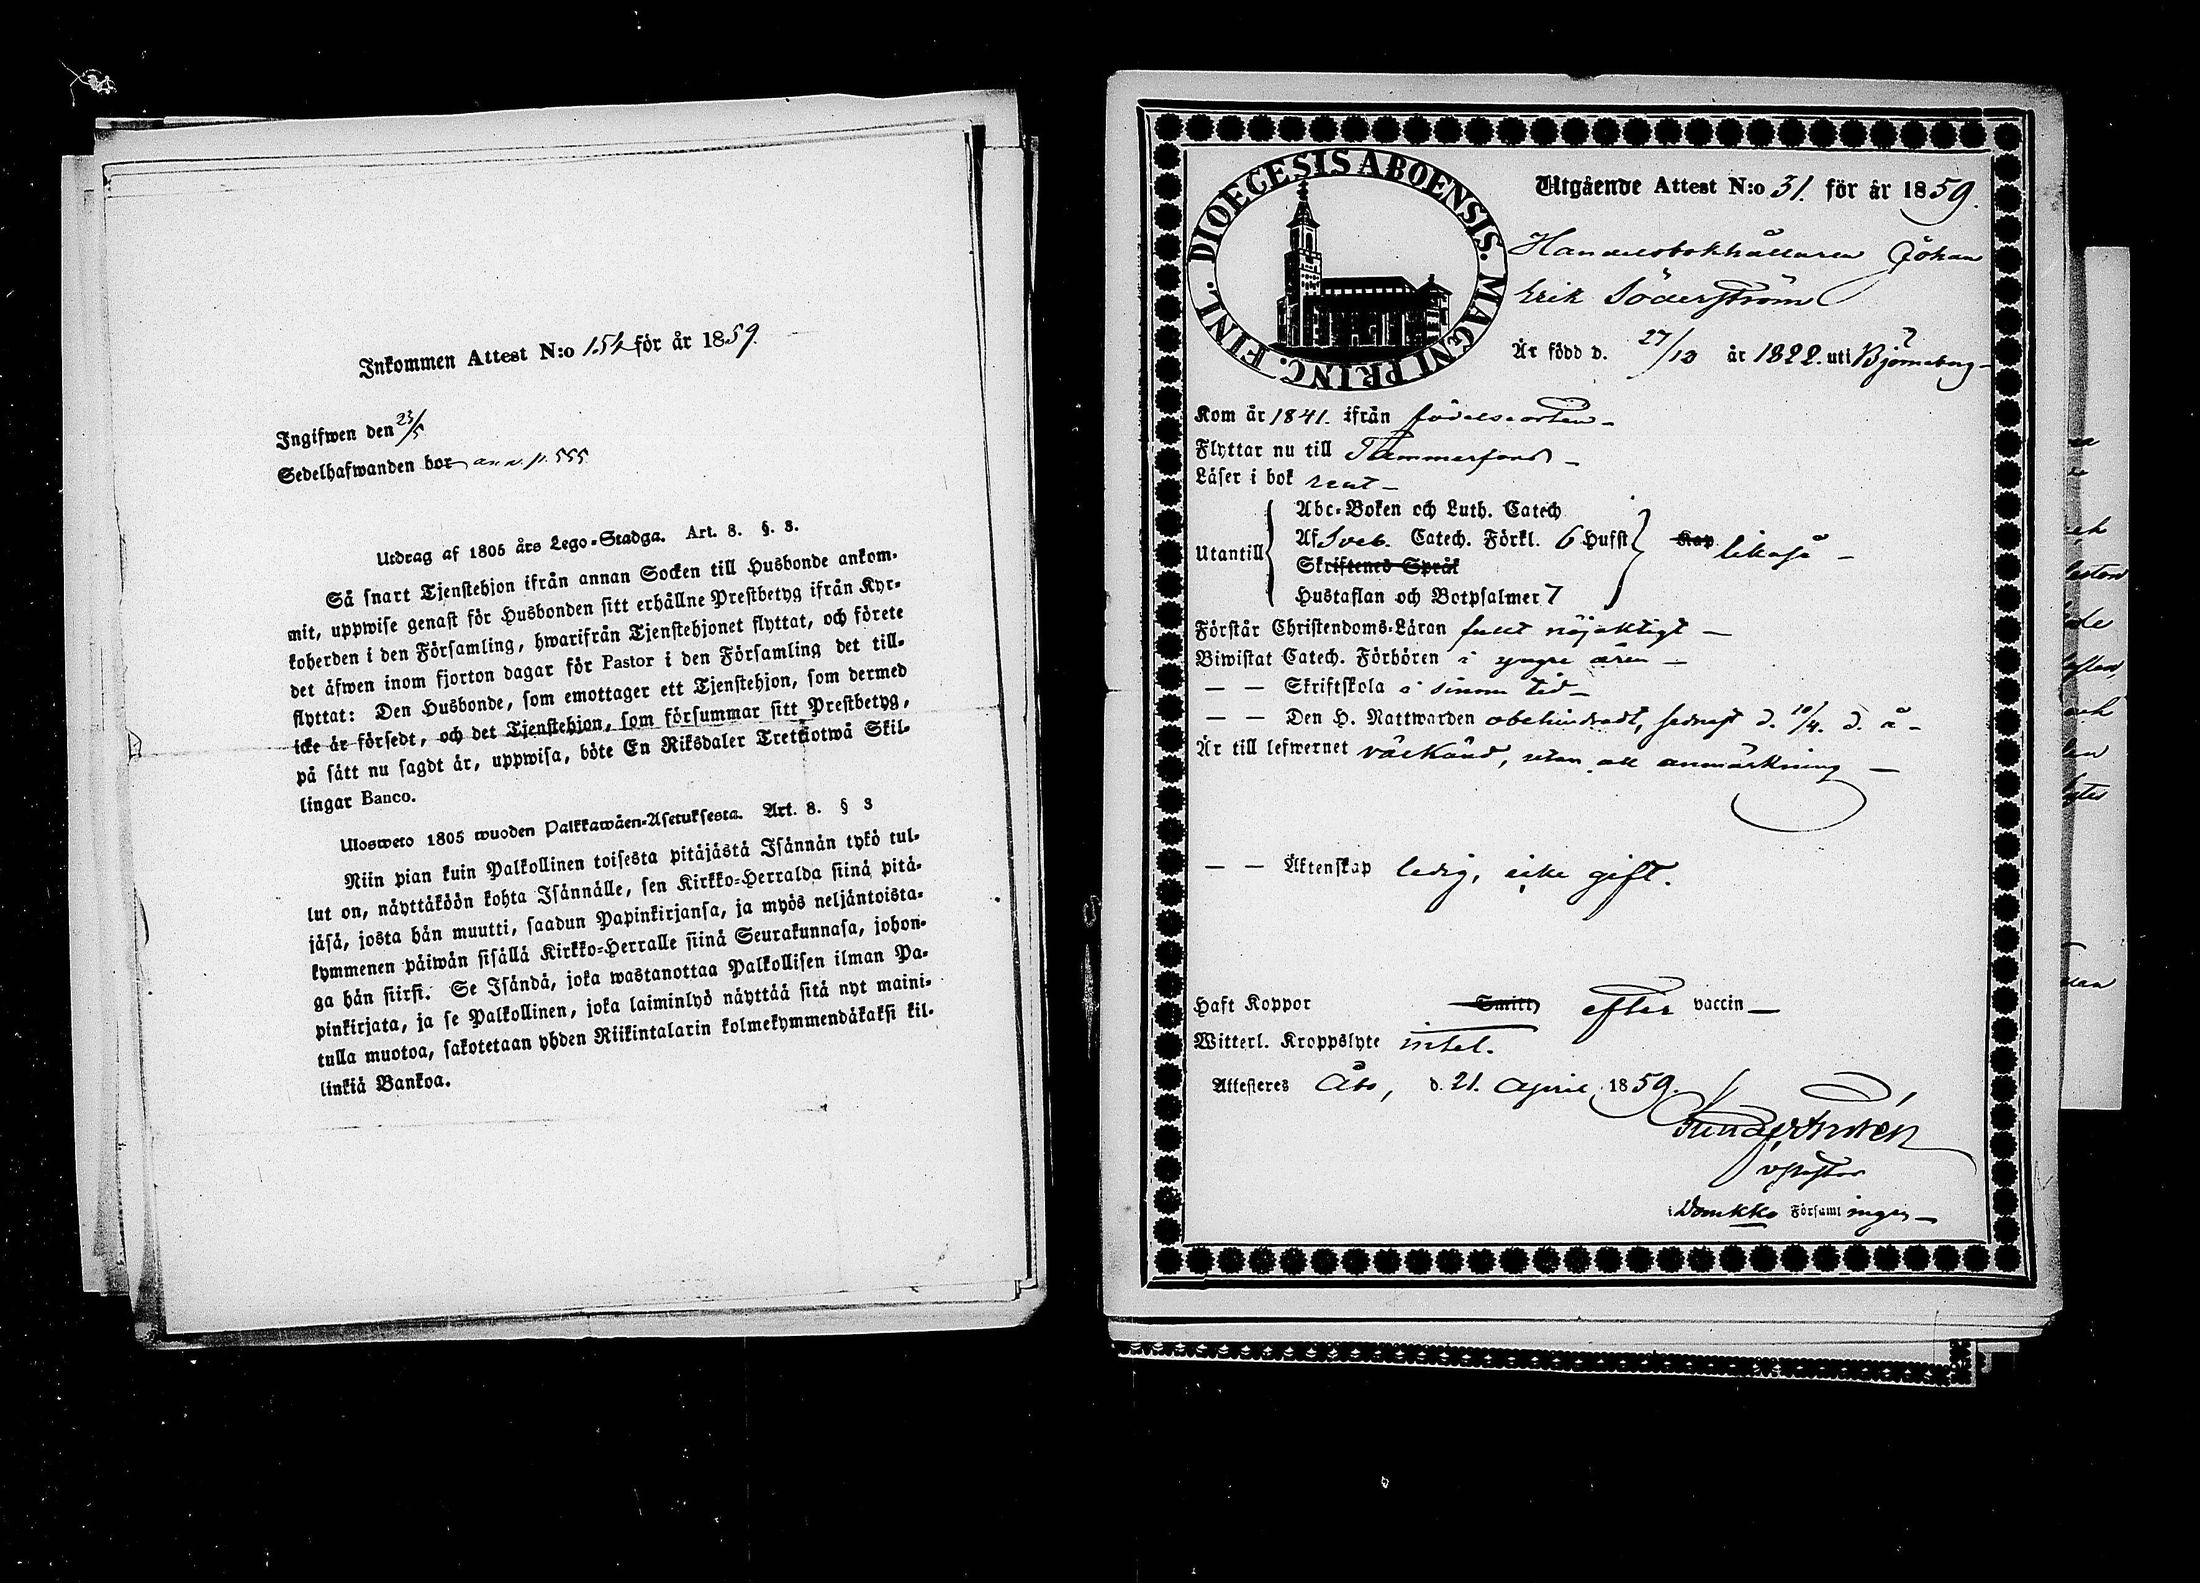 Inkommen Attest N:o 154 för år 1859.
Ingifwen den 23/5
Sedelhafwanden bor ann. p. 555
Utdrag af 1805 års Lego-Stadga. Art. 8. §. 3.
Så snart Tjenstehjon ifrån annan Socken till Husbonde ankom-
mit, uppwise genast för Husbonden sitt erhållne Prestbetyg ifrån Kyr-
koherden i den Församling, hwarifrån Tjenstehjonet flyttat, och förete
det äfwen inom fjorton dagar för Pastor i den Församling det till-
flyttat: Den Husbonde, som emottager ett Tjenstehjon, som dermed
icke är försedt, och det Tjenstehjon, som försummar sitt Prestbetyg,
på sätt nu sagdt är, uppwisa, böte En Riksdaler Trettiotwå Skil-
lingar Banco.
Ulosweto 1805 wuoden Palkkawäen-Asetuksesta. Art. 8. § 3
Niin pian kuin Palkollinen toisesta pitäjästä Isännän tykö tul-
lut on, näyttäköön kohta Isännälle, sen Kirkko-Herralda siinä pitä-
jäsä, josta hän muutti, saadun Papinkirjansa, ja myös neljäntoista-
kymmenen päiwän sisällä Kirkko-Herralle siinä Seurakunnasa, johon-
ga hän siirsi. Se Isändä, joka wastanottaa Palkollisen ilman Pa-
pinkirjata, ja se Palkollinen, joka laiminlyö näyttää sitä nyt maini-
tulla muotoa, sakotetaan yhden Riikintalarin kolmekymmendäkaksi kil-
linkiä Bankoa.
DIOECESIS ABOENSIS. MAGNI PRINC. FINL.
Utgående Attest N:o 31. för år 1859.
Handelsbokhållaren Johan
Erik Söderström
Är född d. 27/10 år 1822. uti Björneborg
Kom år 1841. ifrån födelseorten
Flyttar nu till Tammerfors
Läser i bok rent
Abc-Boken och Luth. Catech
Utantill Af Sveb. Catech. Förkl. 6 Hufst Kap likaså
Skriftenes Språk
Hustaflan och Botpsalmer 7
Förstår Christendoms-Läran fullt nöjaktigt
Biwistat Catech. Förhören i yngre åren
— — Skriftskola i sinom tid
— — Den H. Nattwarden obehindradt, sednast d. 10/4. d. å
Är till lefwernet välkänd, utan all anmärkning
— — Äktenskap ledig, icke gift.
Haft Koppor Smitt, efter vaccin
Witterl. Kroppslyte intet.
Attesteres Åbo, d. 21. April 1859.
v.Pastor
i Domkko Församlingen